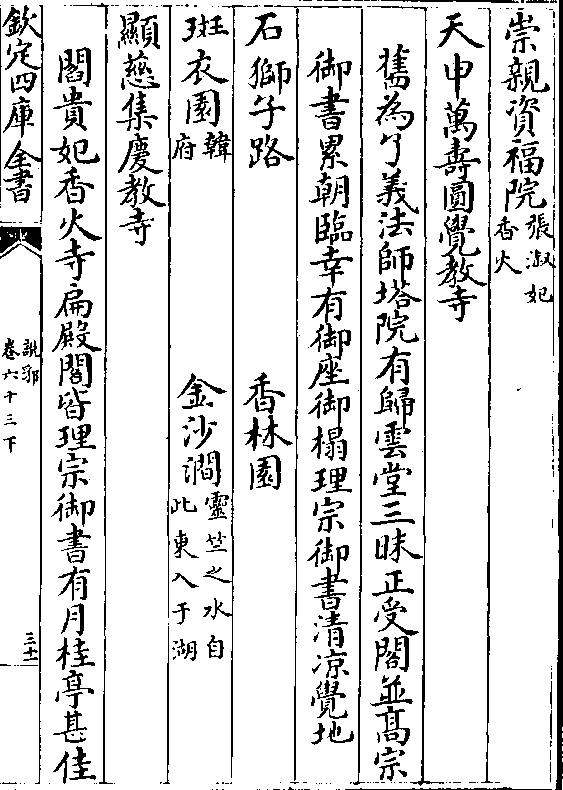 崇親資福院張淑妃香火
天申萬壽圓覺教寺
舊為了義法師塔院有歸雲堂三昧正受閣並高宗
御書累朝臨幸有御座御榻理宗御書清涼覺地
石獅子路　香林園
斑衣園韓府　金沙澗靈竺之水自此東入于湖
顯慈集慶教寺
閻貴妃香火寺扁殿閣皆理宗御書有月桂亭甚佳
欽定四庫全書　說郛卷六十三下　三十二